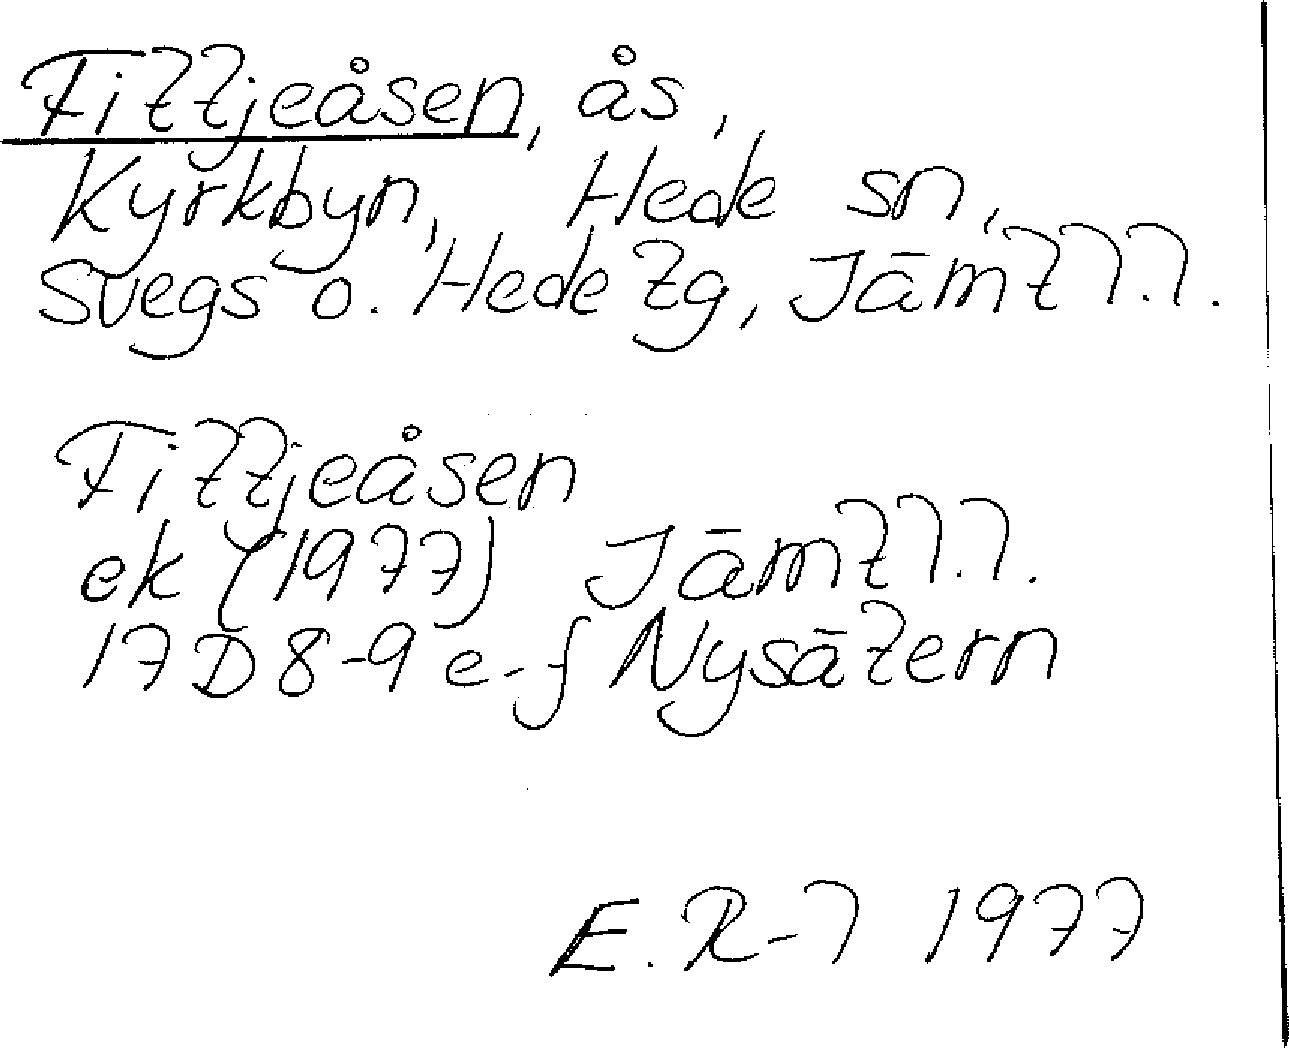 Fittjeåsen, ås,
Kyrkbyn, Hede sn,
Svegs o. Hede tg, Jämtl.l.
Fittjeåsen
ek (1977) Jämtl.l.
17D 8-9 e-f Nysätern
E. R-l 1977